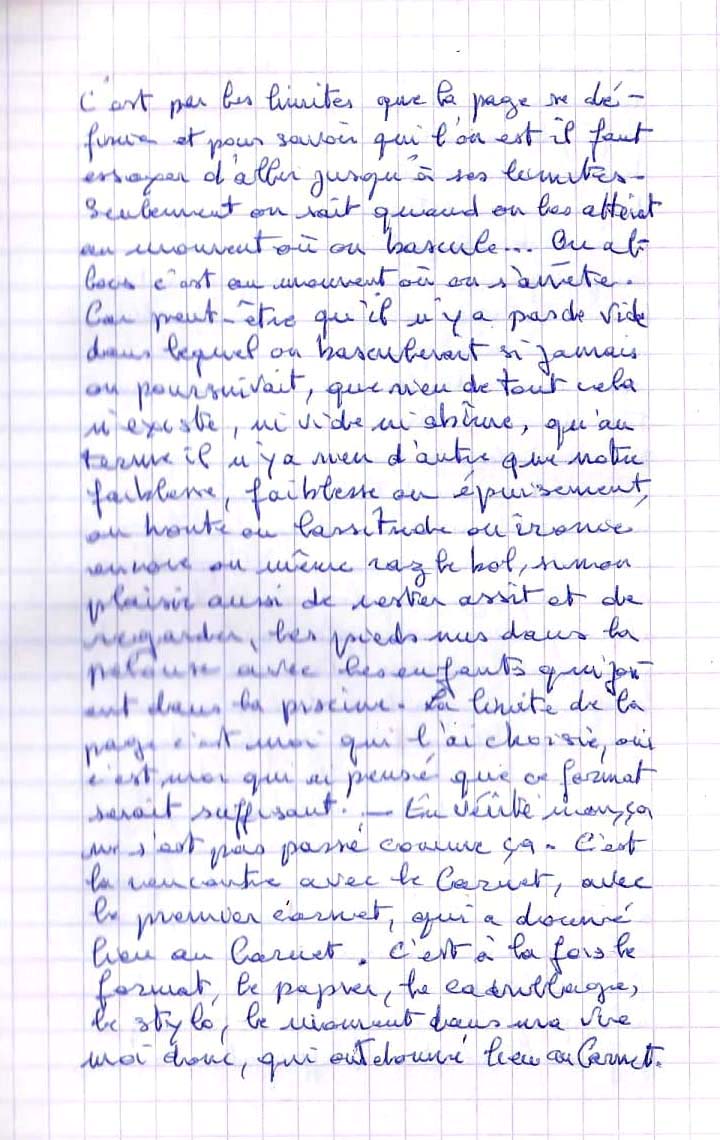 C'est par les limites que la page se dé-
finie et pour savoir qui l'on est il faut
essayer d'aller jusqu'à ses limites.
Seulement on sait quand on les atteint
au moment où on bascule... Ou al-
lors c'est au moment où on s'arrête.
Car peut-être qu'il n'y a pas de vide
dans lequel on basculerait si jamais
on poursuivait, que rien de tout cela
n'existe, ni vide ni abîme, qu'au
terme il n'y a rien d'autre que notre
faiblesse, faiblesse ou épuisement,
ou honte ou lassitude ou ironie
encore ou même raz le bol, sinon
plaisir aussi de rester assit et de
regarder, les pieds nus dans la
pelouse avec les enfants qui jou-
ent dans la piscine. La limite de la
page c'est moi qui l'ai choisie, oui
c'est moi qui ai pensé que ce format
serait suffisant. — En vérité non, ça
ne s'est pas passé comme ça. C'est
la rencontre avec le Carnet, avec
le premier carnet, qui a donné
lieu au Carnet. C'est à la fois le
format, le papier, le cadrillage,
le stylo, le moment dans ma vie
moi donc, qui ont donné lieu au Carnet.